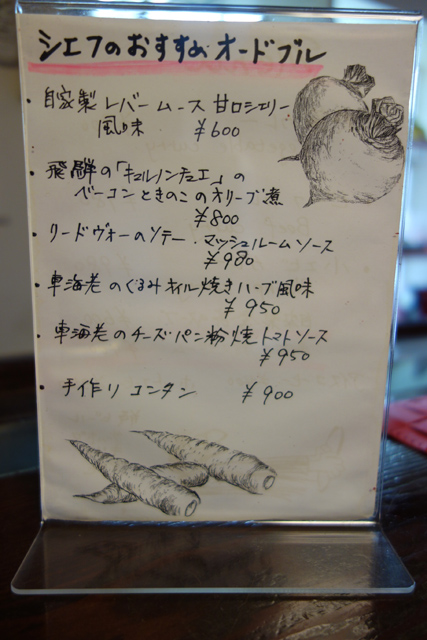 シェフのおすすめオードブル
・自家製レバームース 甘口シェリー
風味 ¥600
・飛騨の「キュルノンチュエ」の
ベーコンときのこのオリーブ煮
¥800
・リードヴォーのソテー・マッシュルームソース
¥980
・車海老のぐるみ 焼きハーブ風味
¥950
・車海老のチーズパン粉焼トマトソース
¥950
・手作り コンタン ¥900